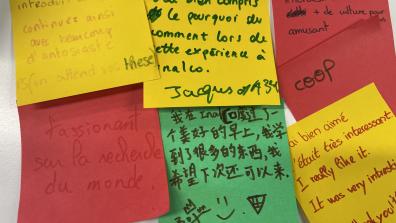 introdui
continues ainsi
avec beaucoup
d'antousiaste
on attend vos thèse
ai bien compris
le pourquoi du
comment lors de
cette expérience à
Inalco.
Jacques
+ de culture pour
amusant
COOP
Passionant
sur la recherche
du monde.
我在Inalco度过了一
个美好的早上,我学
到了很多的东西,我
希望下次还可以来.
ai bien aimé
c'était très interessant
I really like it.
It was very interesting